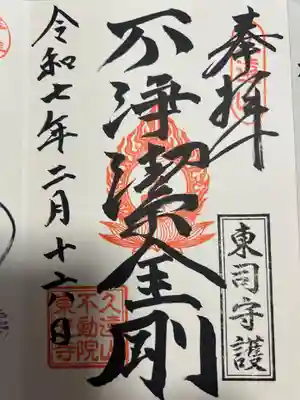 奉拝
東司守護
不浄潔金剛
令和七年二月十六日
久遠山
不動院
東寺